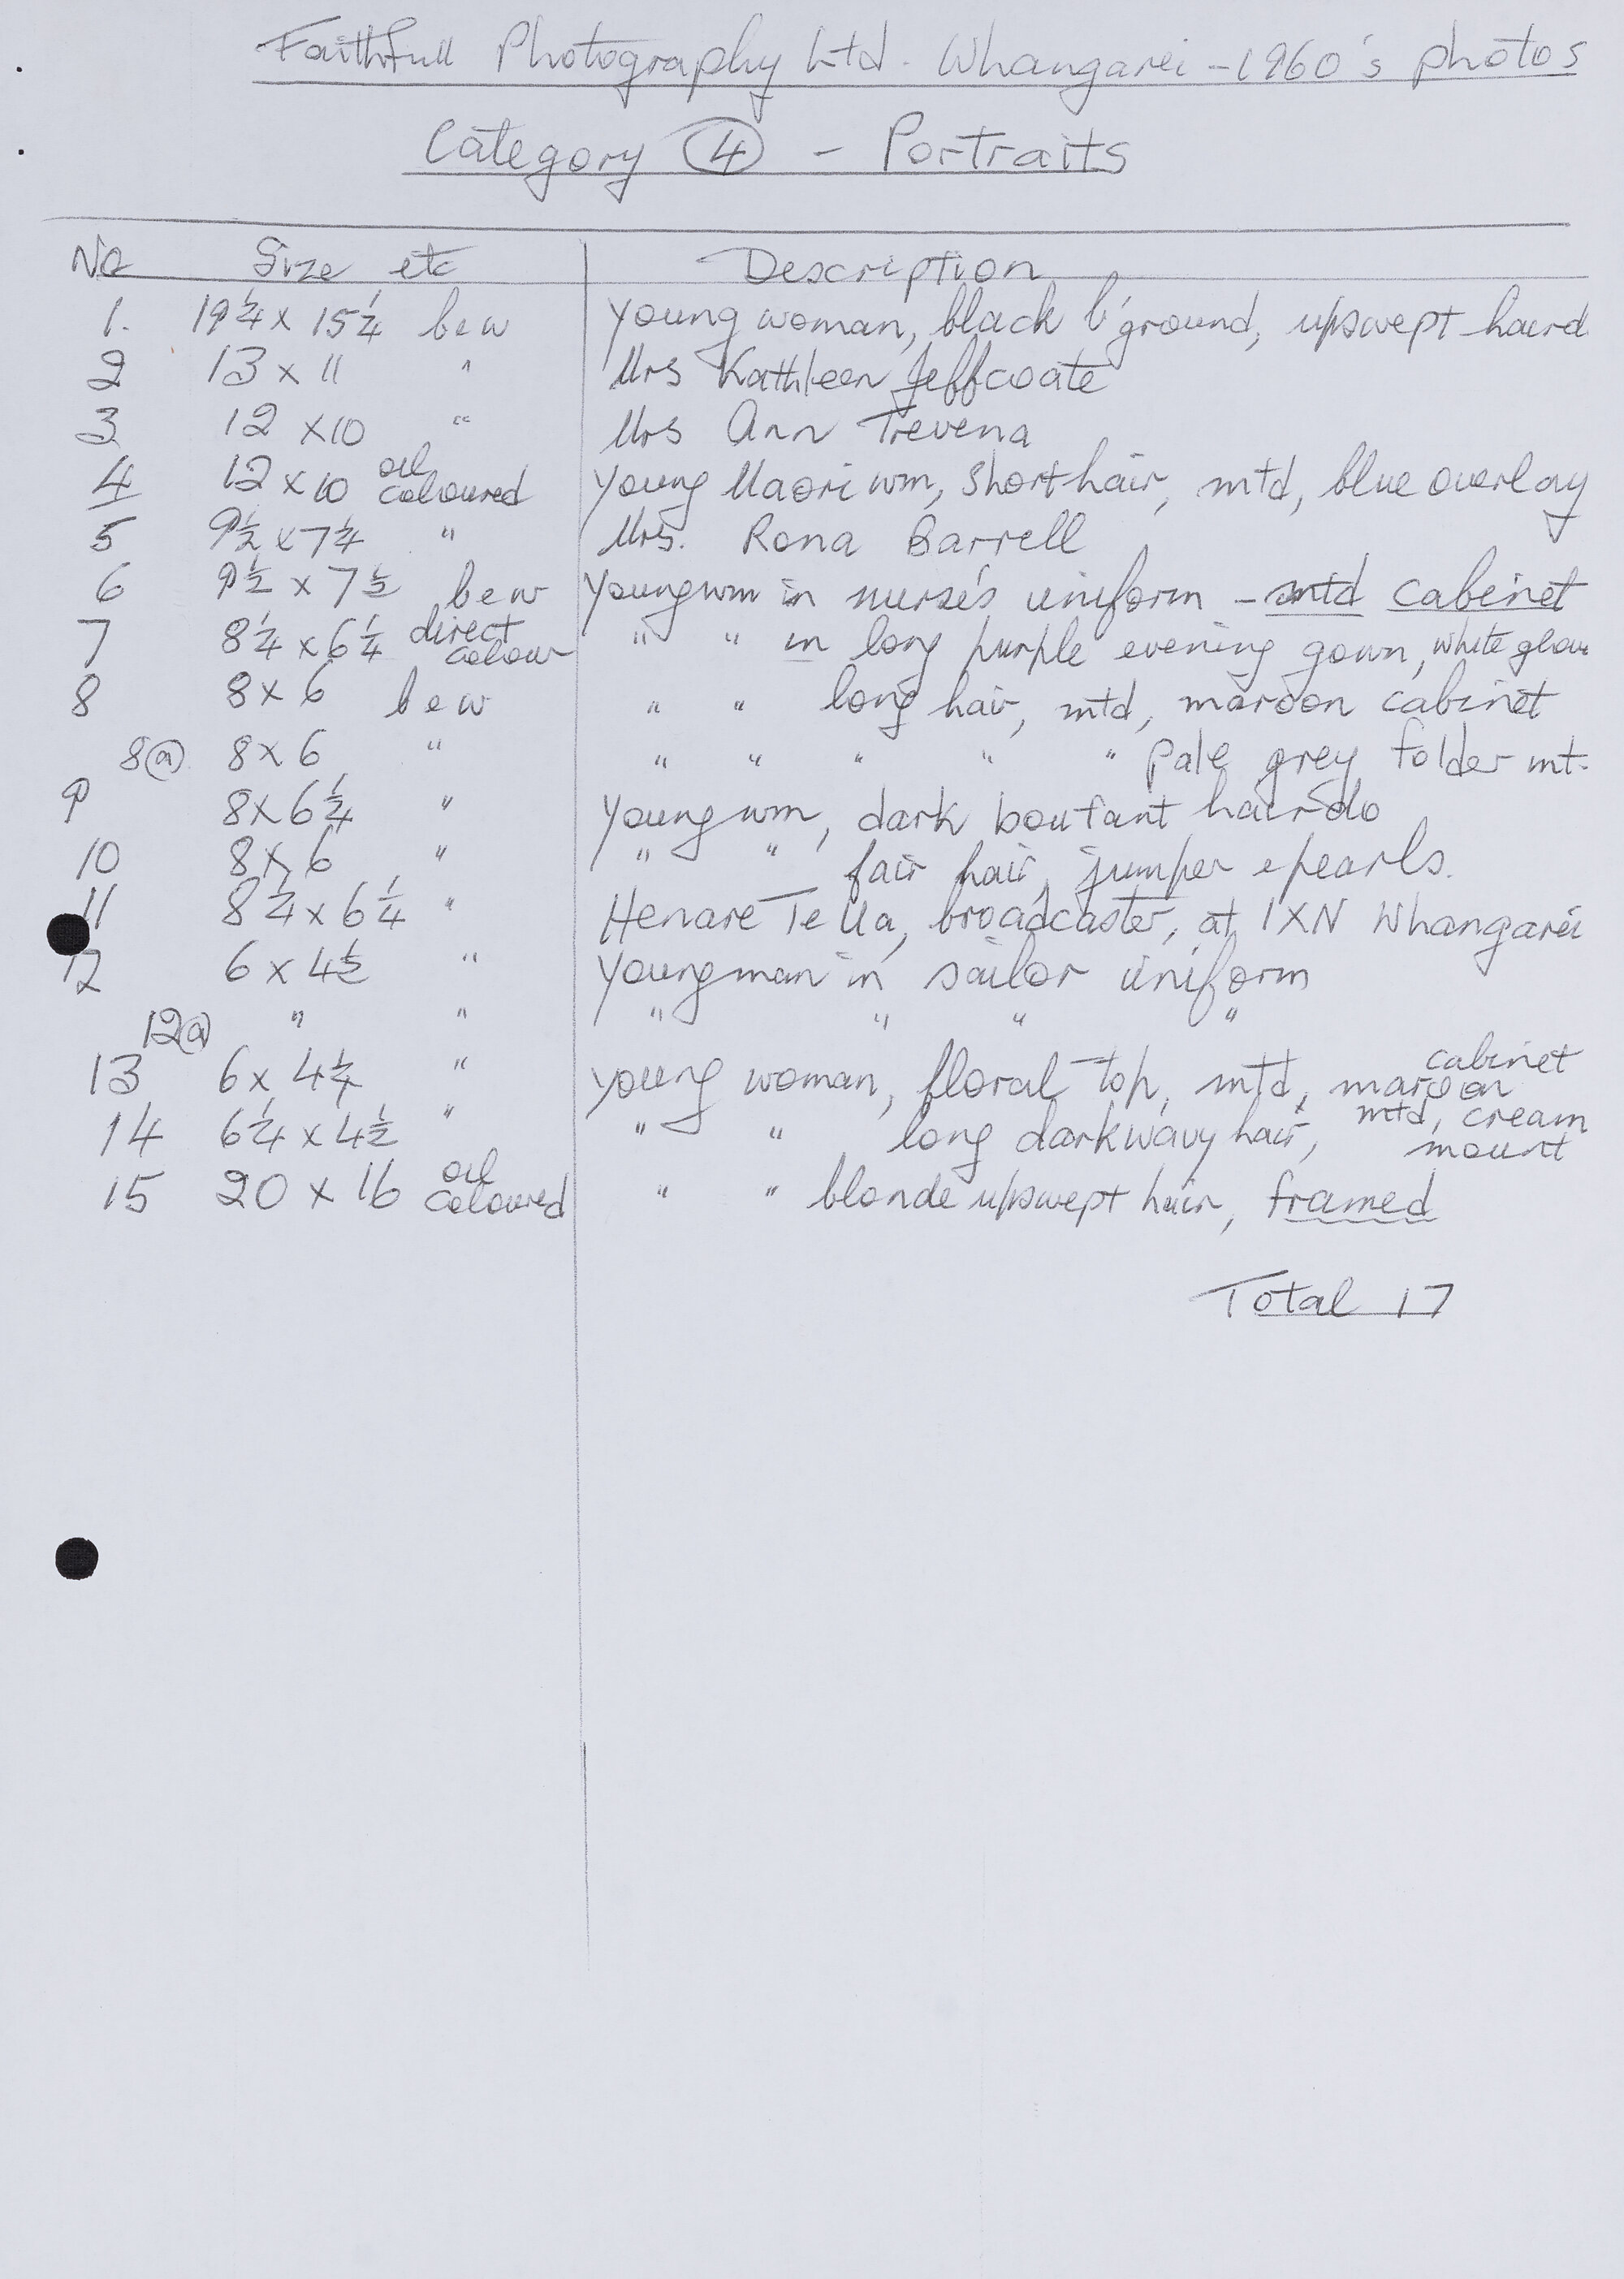 Faithfull Photography Ltd - Whangarei - 1960's photos
Category 4 - Portraits
No Size etc Description
1. 19¼ x 15¼ b e w Young woman, black b'ground, upswept haird
2 13 x 11 " Mrs Kathleen Jeffcoate
3 12 x 10 " Mrs Ann Trevena
4 12 x 10 oil coloured Young Maori wm, short hair, mtd, blue overlay
5 9½ x 7¼ " Mrs. Rona Barrell
6 9½ x 7½ b e w Young wm in nurse's uniform - mtd cabinet
7 8¼ x 6¼ direct colour " " in long purple evening gown, white glove
8 8 x 6 b e w " " long hair, mtd, maroon cabinet
8(a) 8 x 6 " " " " " " pale grey folder mt.
9 8 x 6¼ " Young wm, dark boufant hair-do
10 8 x 6 " " " fair hair, jumper e pearls.
11 8¼ x 6¼ " Henare Te Ua, broadcaster, at 1XN Whangarei
12 6 x 4½ " Young man in sailor uniform
12(a) " " " " " "
13 6 x 4¼ " Young woman, floral top, mtd, maroon cabinet
14 6¼ x 4½ " " " long dark wavy hair, mtd, cream mount
15 20 x 16 oil coloured " " blonde upswept hair, framed
Total 17